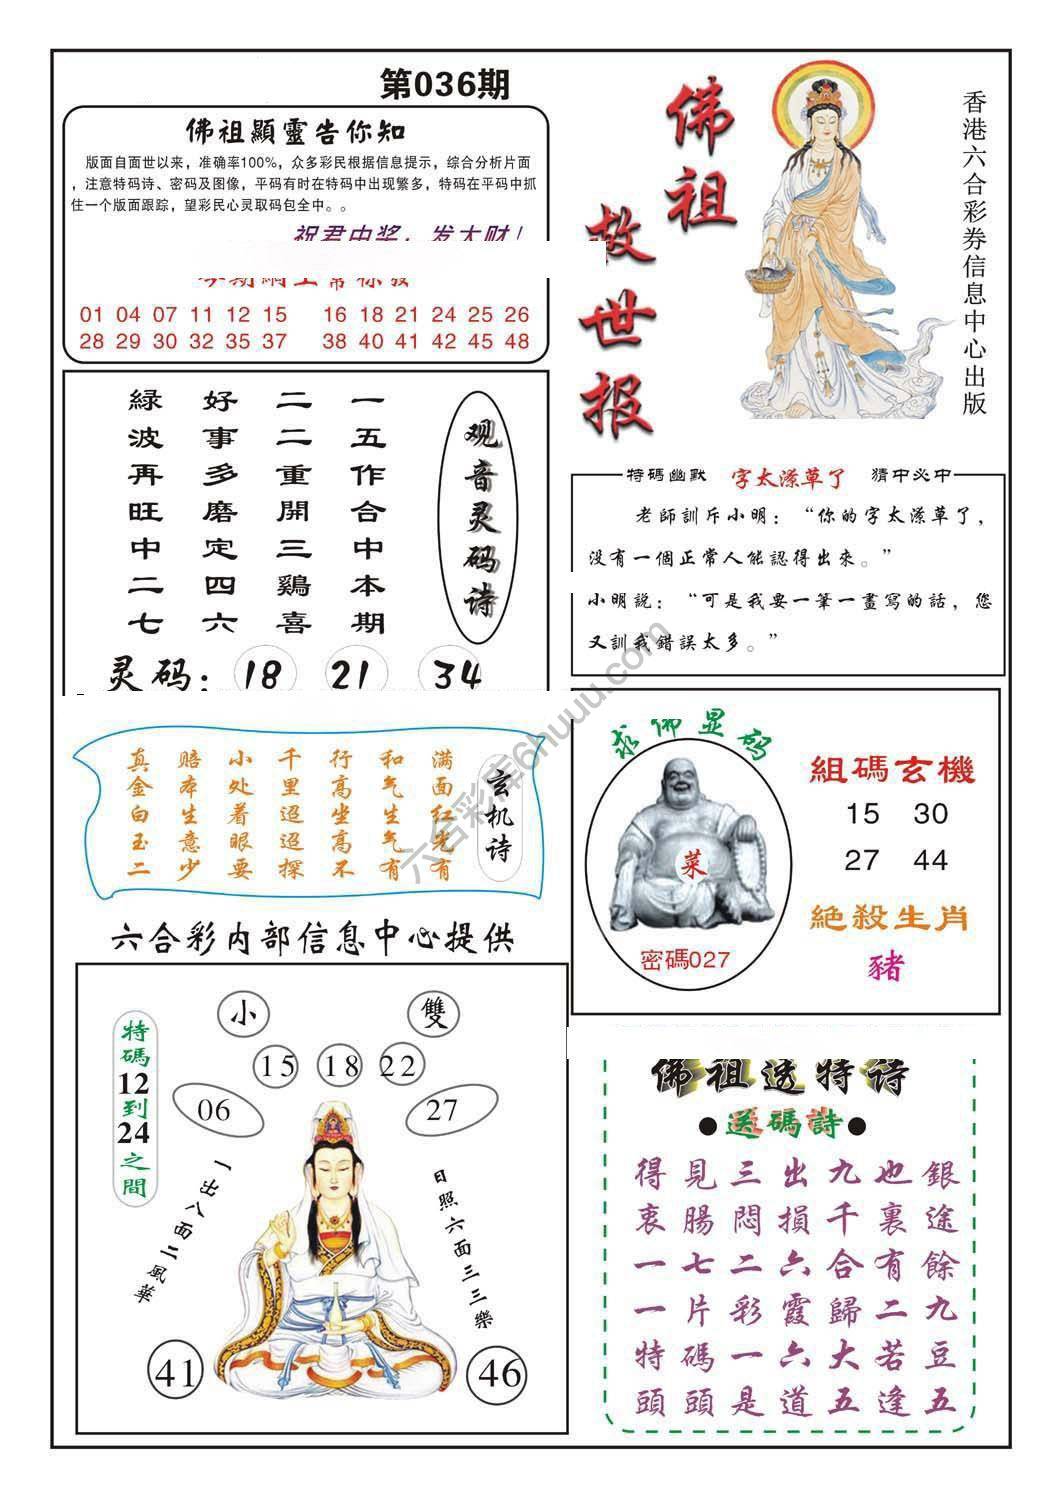 第036期
佛祖顯靈告你知
版面自面世以来，准确率100%，众多彩民根据信息提示，综合分析片面
，注意特码诗、密码及图像，平码有时在特码中出现繁多，特码在平码中抓
住一个版面跟踪，望彩民心灵取码包全中。。
祝君中奖，发大财！
01 04 07 11 12 15 16 18 21 24 25 26
28 29 30 32 35 37 38 40 41 42 45 48
佛祖
救世报
香港六合彩券信息中心出版
观音灵码诗
一五作合中本期
二二重開三鷄喜
好事多磨定四六
緑波再旺中二七
灵码：18 21 34
特碼幽默 字太潦草了 猜中必中
老師訓斥小明：“你的字太潦草了，
没有一個正常人能認得出來。”
小明説：“可是我要一筆一畫寫的話，您
又訓我錯誤太多。”
玄机诗
满面红光有
和气生气有
行高坐高不
千里迢迢探
小处着眼要
赔本生意少
真金白玉二
求佛显码
菜
密碼027
組碼玄機
15 30
27 44
絶殺生肖
豬
六合彩内部信息中心提供
小 雙
15 18 22
06 27
特碼12到24之間
一出八面二風華
日照六面三三樂
41 46
佛祖透特诗
●送碼詩●
得見三出九也銀
衷腸悶損千裏途
一七二六合有餘
一片彩霞歸二九
特碼一六大若豆
頭頭是道五逢五
六合彩库6huuu.com